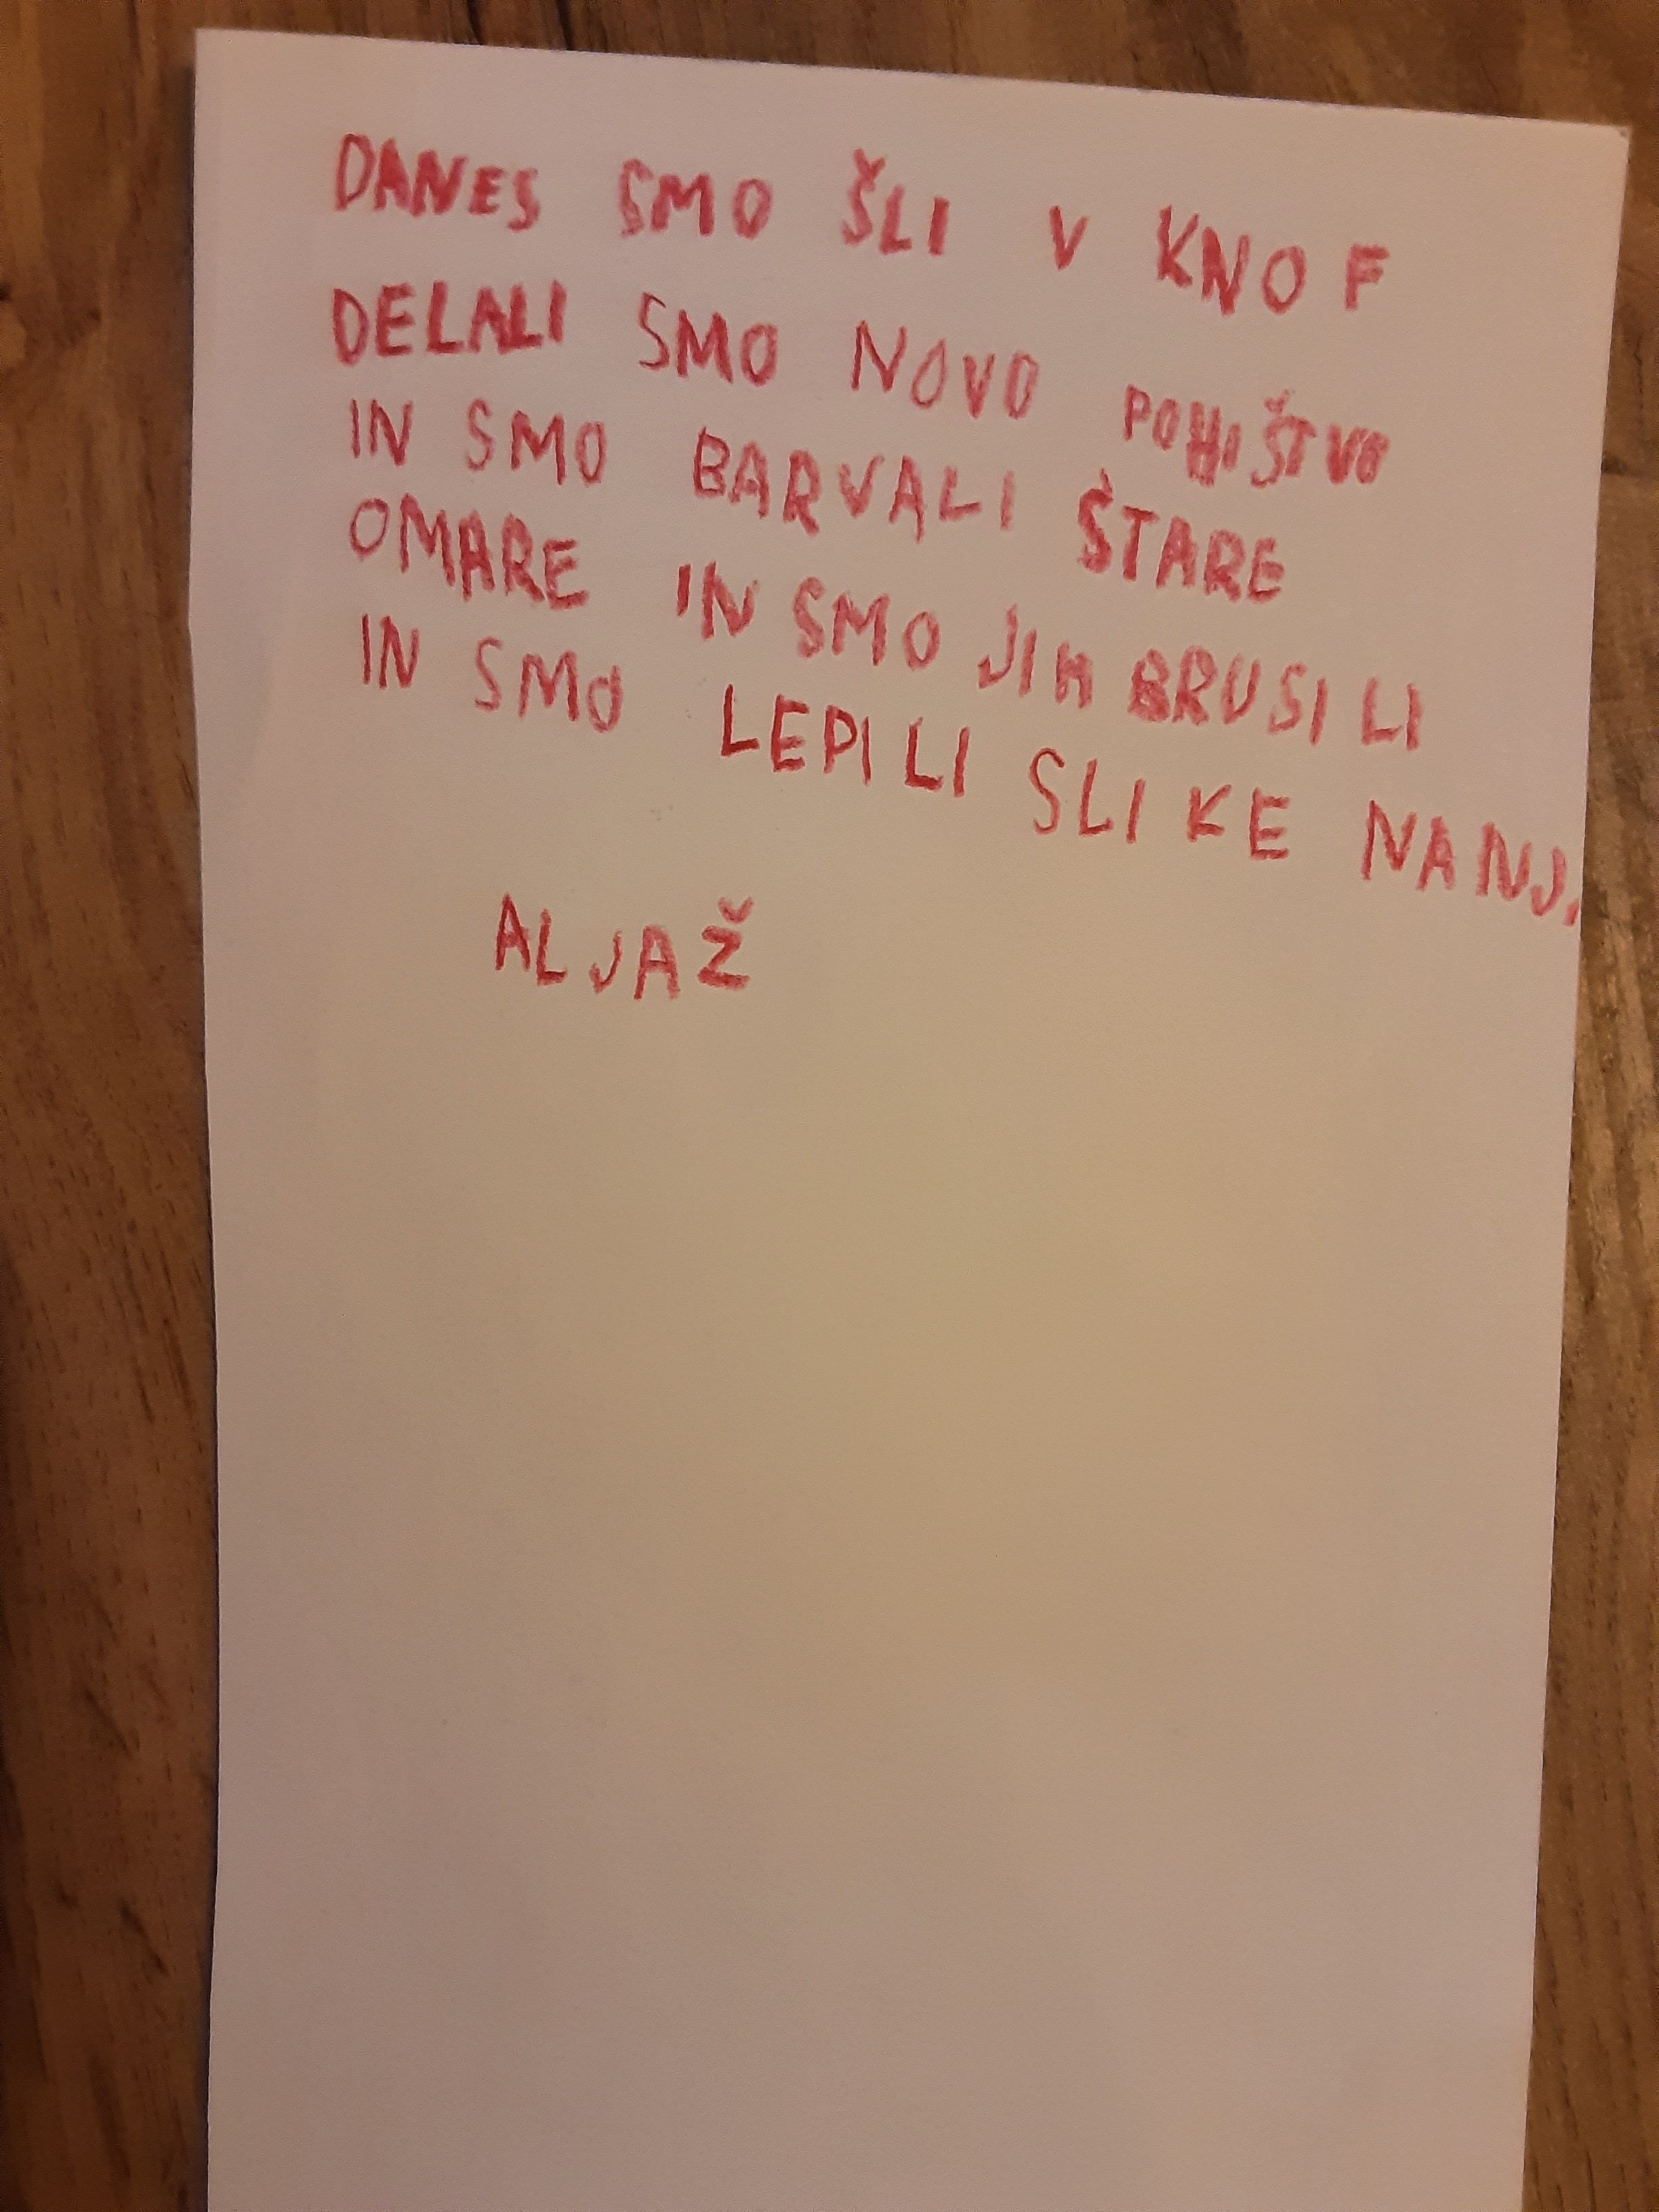 DANES SMO ŠLI V KNOF
DELALI SMO NOVO POHIŠTVO
IN SMO BARVALI ŠTARE
OMARE IN SMO JIH BRUSILI
IN SMO LEPILI SLIKE NANJ.
ALJAŽ